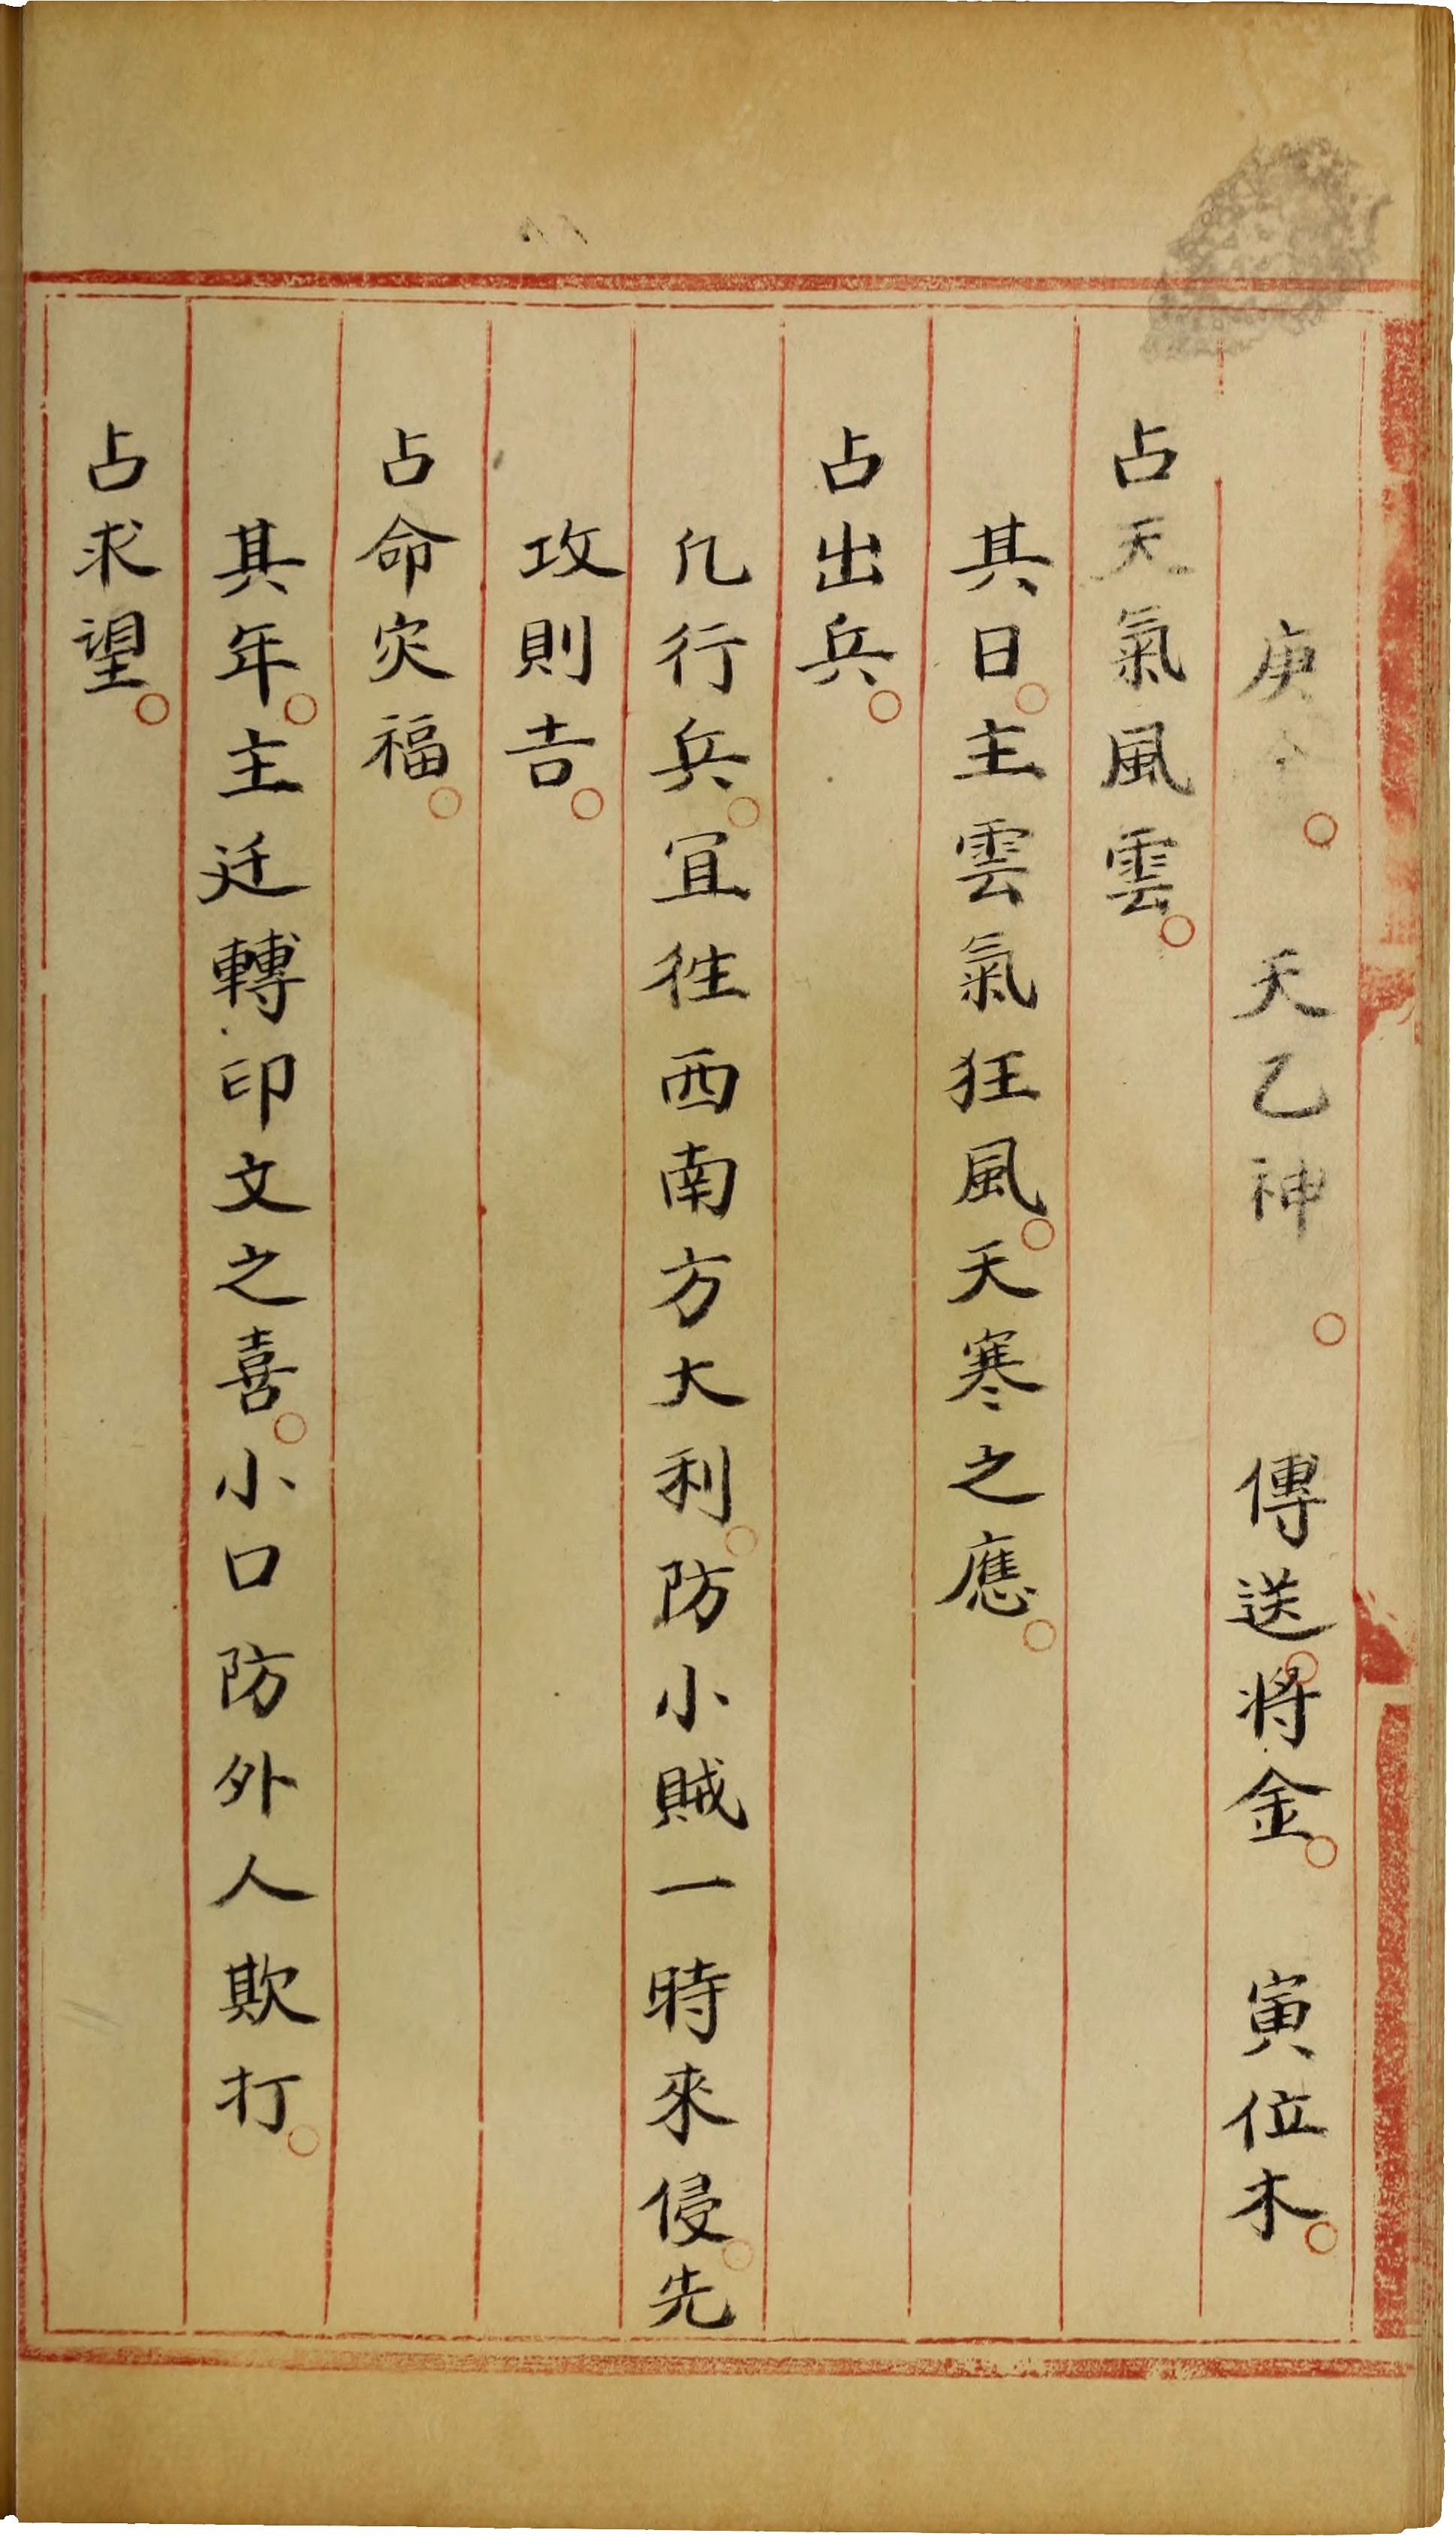 庚金。天乙神。傳送。將金。寅位木。
占天氣風雲。
其日。主雲氣狂風。天寒之應。
占出兵。
凡行兵。宜徃西南方大利。防小賊一時來侵。先
攻則吉。
占命灾福。
其年。主迁轉印文之喜。小口防外人欺打。
占求望。